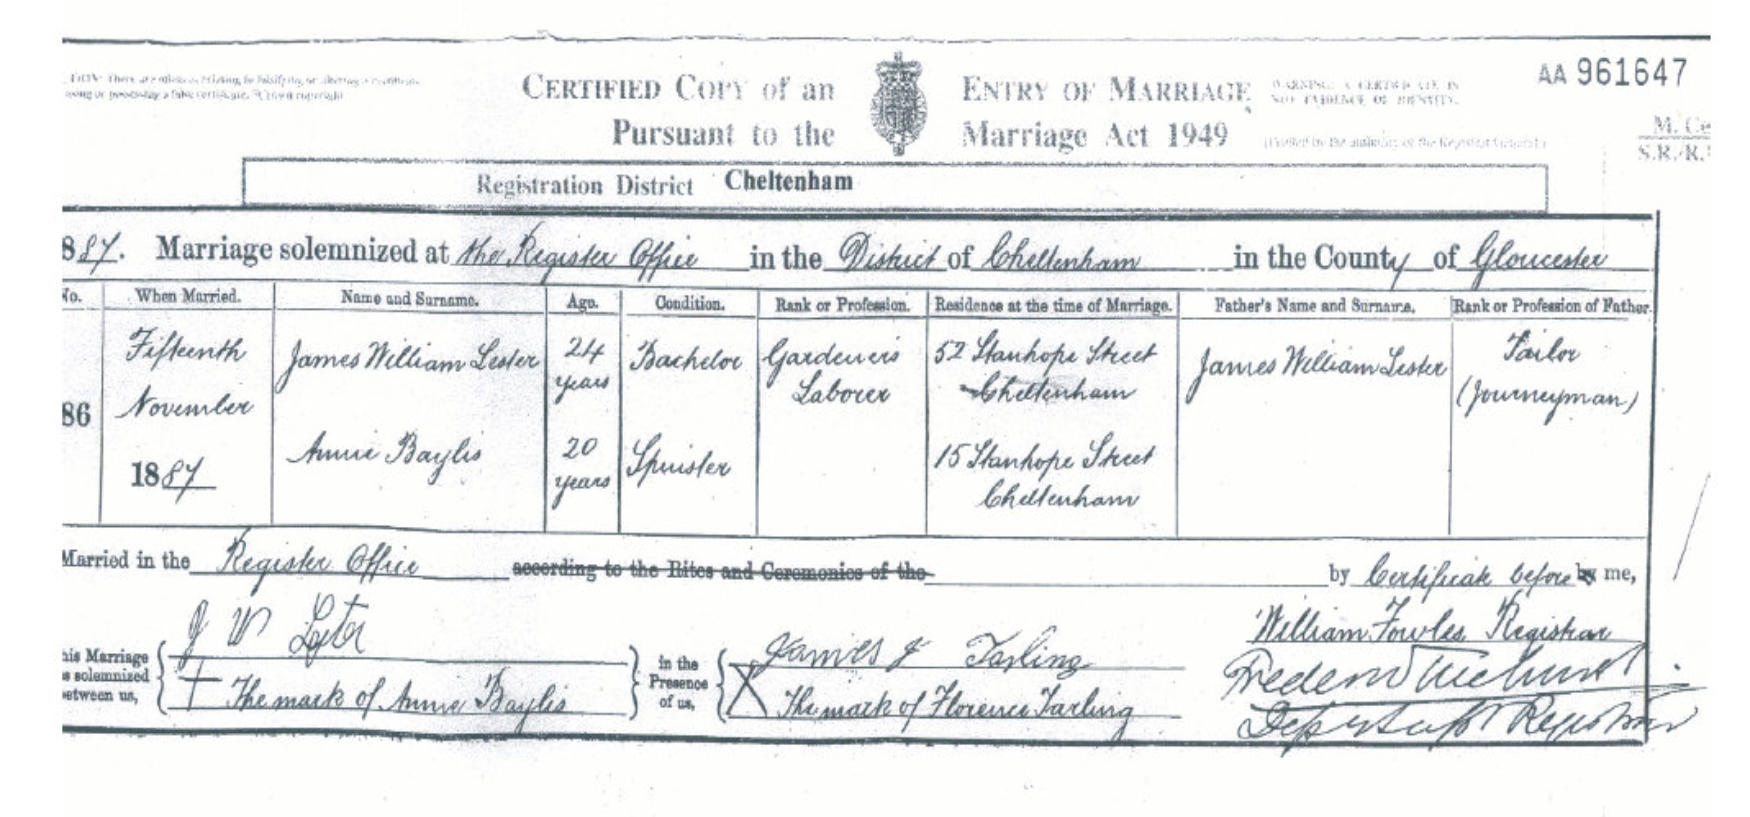 CERTIFIED COPY of an ENTRY OF MARRIAGE
WARNING: A CERTIFICATE IS
NOT EVIDENCE OF IDENTITY.
AA 961647
Pursuant to the Marriage Act 1949
(Printed by the authority of the Registrar General.)
M. Ce
S.R./R.
Registration District Cheltenham
887. Marriage solemnized at the Register Office in the District of Cheltenham in the County of Gloucester
No. When Married. Name and Surname. Age. Condition. Rank or Profession. Residence at the time of Marriage. Father's Name and Surname. Rank or Profession of Father.
86 Fifteenth November 1887 James William Lester 24 years Bachelor Gardener's Laborer 52 Stanhope Street Cheltenham James William Lester Tailor (Journeyman)
Annie Baylis 20 years Spinster 15 Stanhope Street Cheltenham
Married in the Register Office according to the Rites and Ceremonies of the by Certificate before by me,
This Marriage was solemnized between us, J W Lester
The mark of Annie Baylis
in the Presence of us, James J Tarling
X The mark of Florence Tarling
William Fowles Registrar
Deputy Supt Registrar